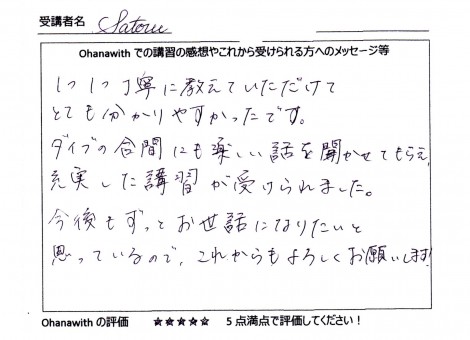 受講者名 Satoru
Ohanawith での講習の感想やこれから受けられる方へのメッセージ等
1つ1つ丁寧に教えていただけて
とても分かりやすかったです。
ダイブの合間にも楽しい話を聞かせてもらえ、
充実した講習が受けられました。
今後もずっとお世話になりたいと
思っているので、これからもよろしくお願いします!
Ohanawith の評価 ★★★★★ 5点満点で評価してください!